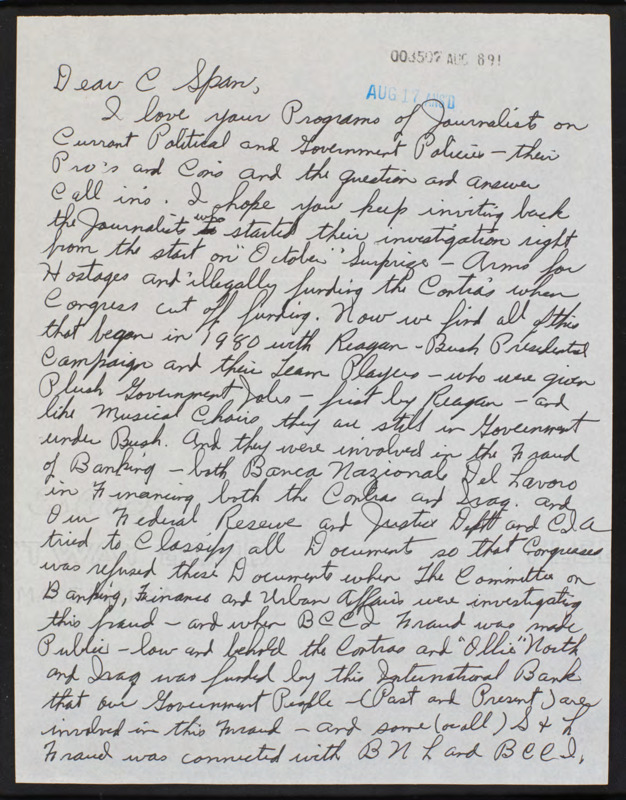 003507 AUG 89!
AUG 17 AM'D
Dear C Span,
I love your Programs of Journalists on
Current Political and Government Policies – their
Pro's and Con's and the question and answer
Call in's. I hope you keep inviting back
the Journalists who started their investigation right
from the start on "October" Surprise – Arms for
Hostages and illegally funding the Contra's when
Congress cut off funding. Now we find all of this
that began in 1980 with Reagan – Bush Presidential
Campaign and their Team Players – who were given
Plush Government Jobs – first by Reagan – and
like Musical Chairs they are still in Government
under Bush. And they were involved in the Fraud
of Banking – both Banca Nazionale Del Lavoro
in Financing both the Contras and Iraq. and
Our Federal Reserve and Justice Deptt and C.I.A
tried to Classify all Documents so that Congress
was refused these Documents when The Committee on
Banking, Finance and Urban Affairs were investigating
this fraud – and when BCCI Fraud was made
Public – low and behold the Contras and "Ollie" North
and Iraq was funded by this International Bank
that our Government People – (Past and Present) are
involved in this Fraud – and some (or all) S & L
Fraud was connected with B N L and B C C I.